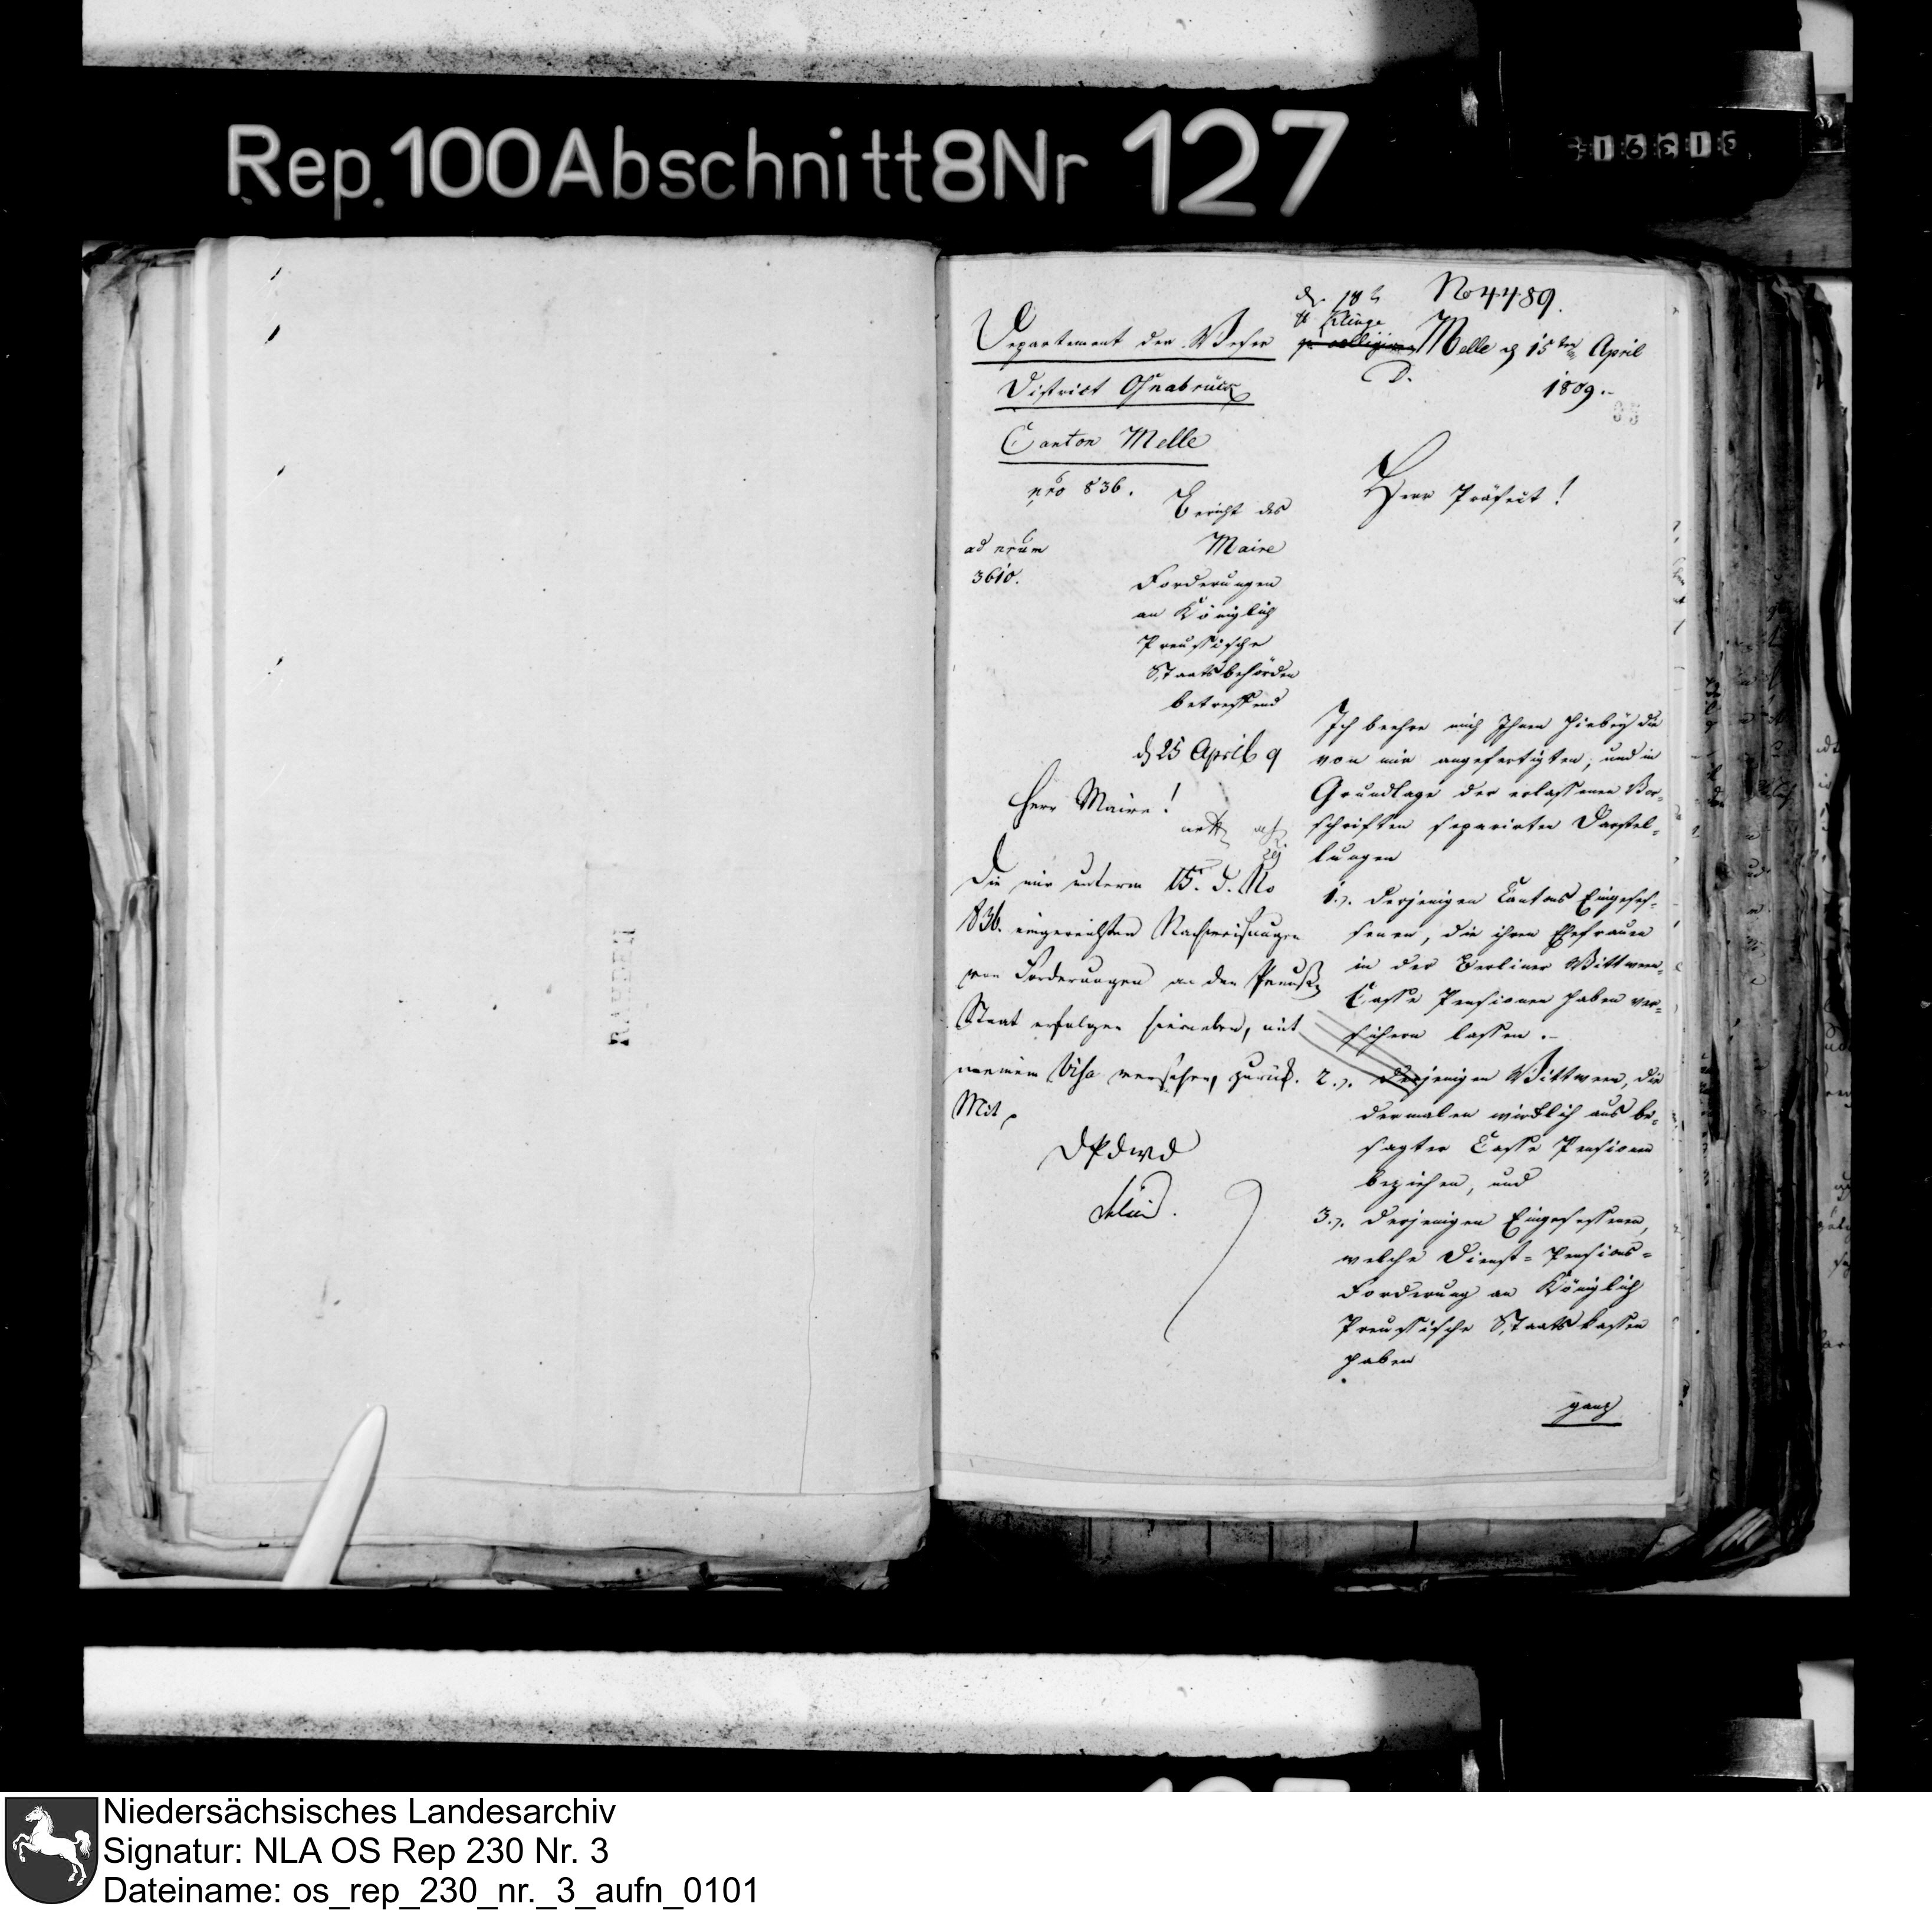 Rep. 100 Abschnitt 8 Nr 127
No 4489.
Departement der Weser
Klinge
Melle d 15ten April
1809.
District Osnabrück
D.
Canton Melle
nro 836.
Bericht des
Maire
ad nrum
3610.
Forderungen
an Königlich
Preussische
Staatsbehörden
betreffend
Herr Präfect!
Ich beehre mich Ihnen hiebey die
von mir angefertigten, und in
Grundlage der erlassenen Vor-
schriften separirten Darstel-
lungen
1.). derjenigen Cantons Eingeses-
senen, die ihren Ehefrauen
in der Berliner Wittwen-
Casse Pensionen haben ver-
sichern lassen.-
2.). derjenigen Wittwen, die
dermalen wirklich aus be-
sagter Casse Pensionen
beziehen, und
3.). derjenigen Eingesessenen,
welche Dienst-Pensions-
Forderung an Königlich
Preussische Staatskassen
haben
ganz
d 25 April 9
Herr Maire!
Die mir unterm 15. d. No
836. eingereichten Nachweisungen
von Forderungen an den Preuß
Staat erfolgen hierneben, mit
meinem Visa versehen, zurück.
Mit
DPdWD
Niedersächsisches Landesarchiv
Signatur: NLA OS Rep 230 Nr. 3
Dateiname: os_rep_230_nr._3_aufn_0101